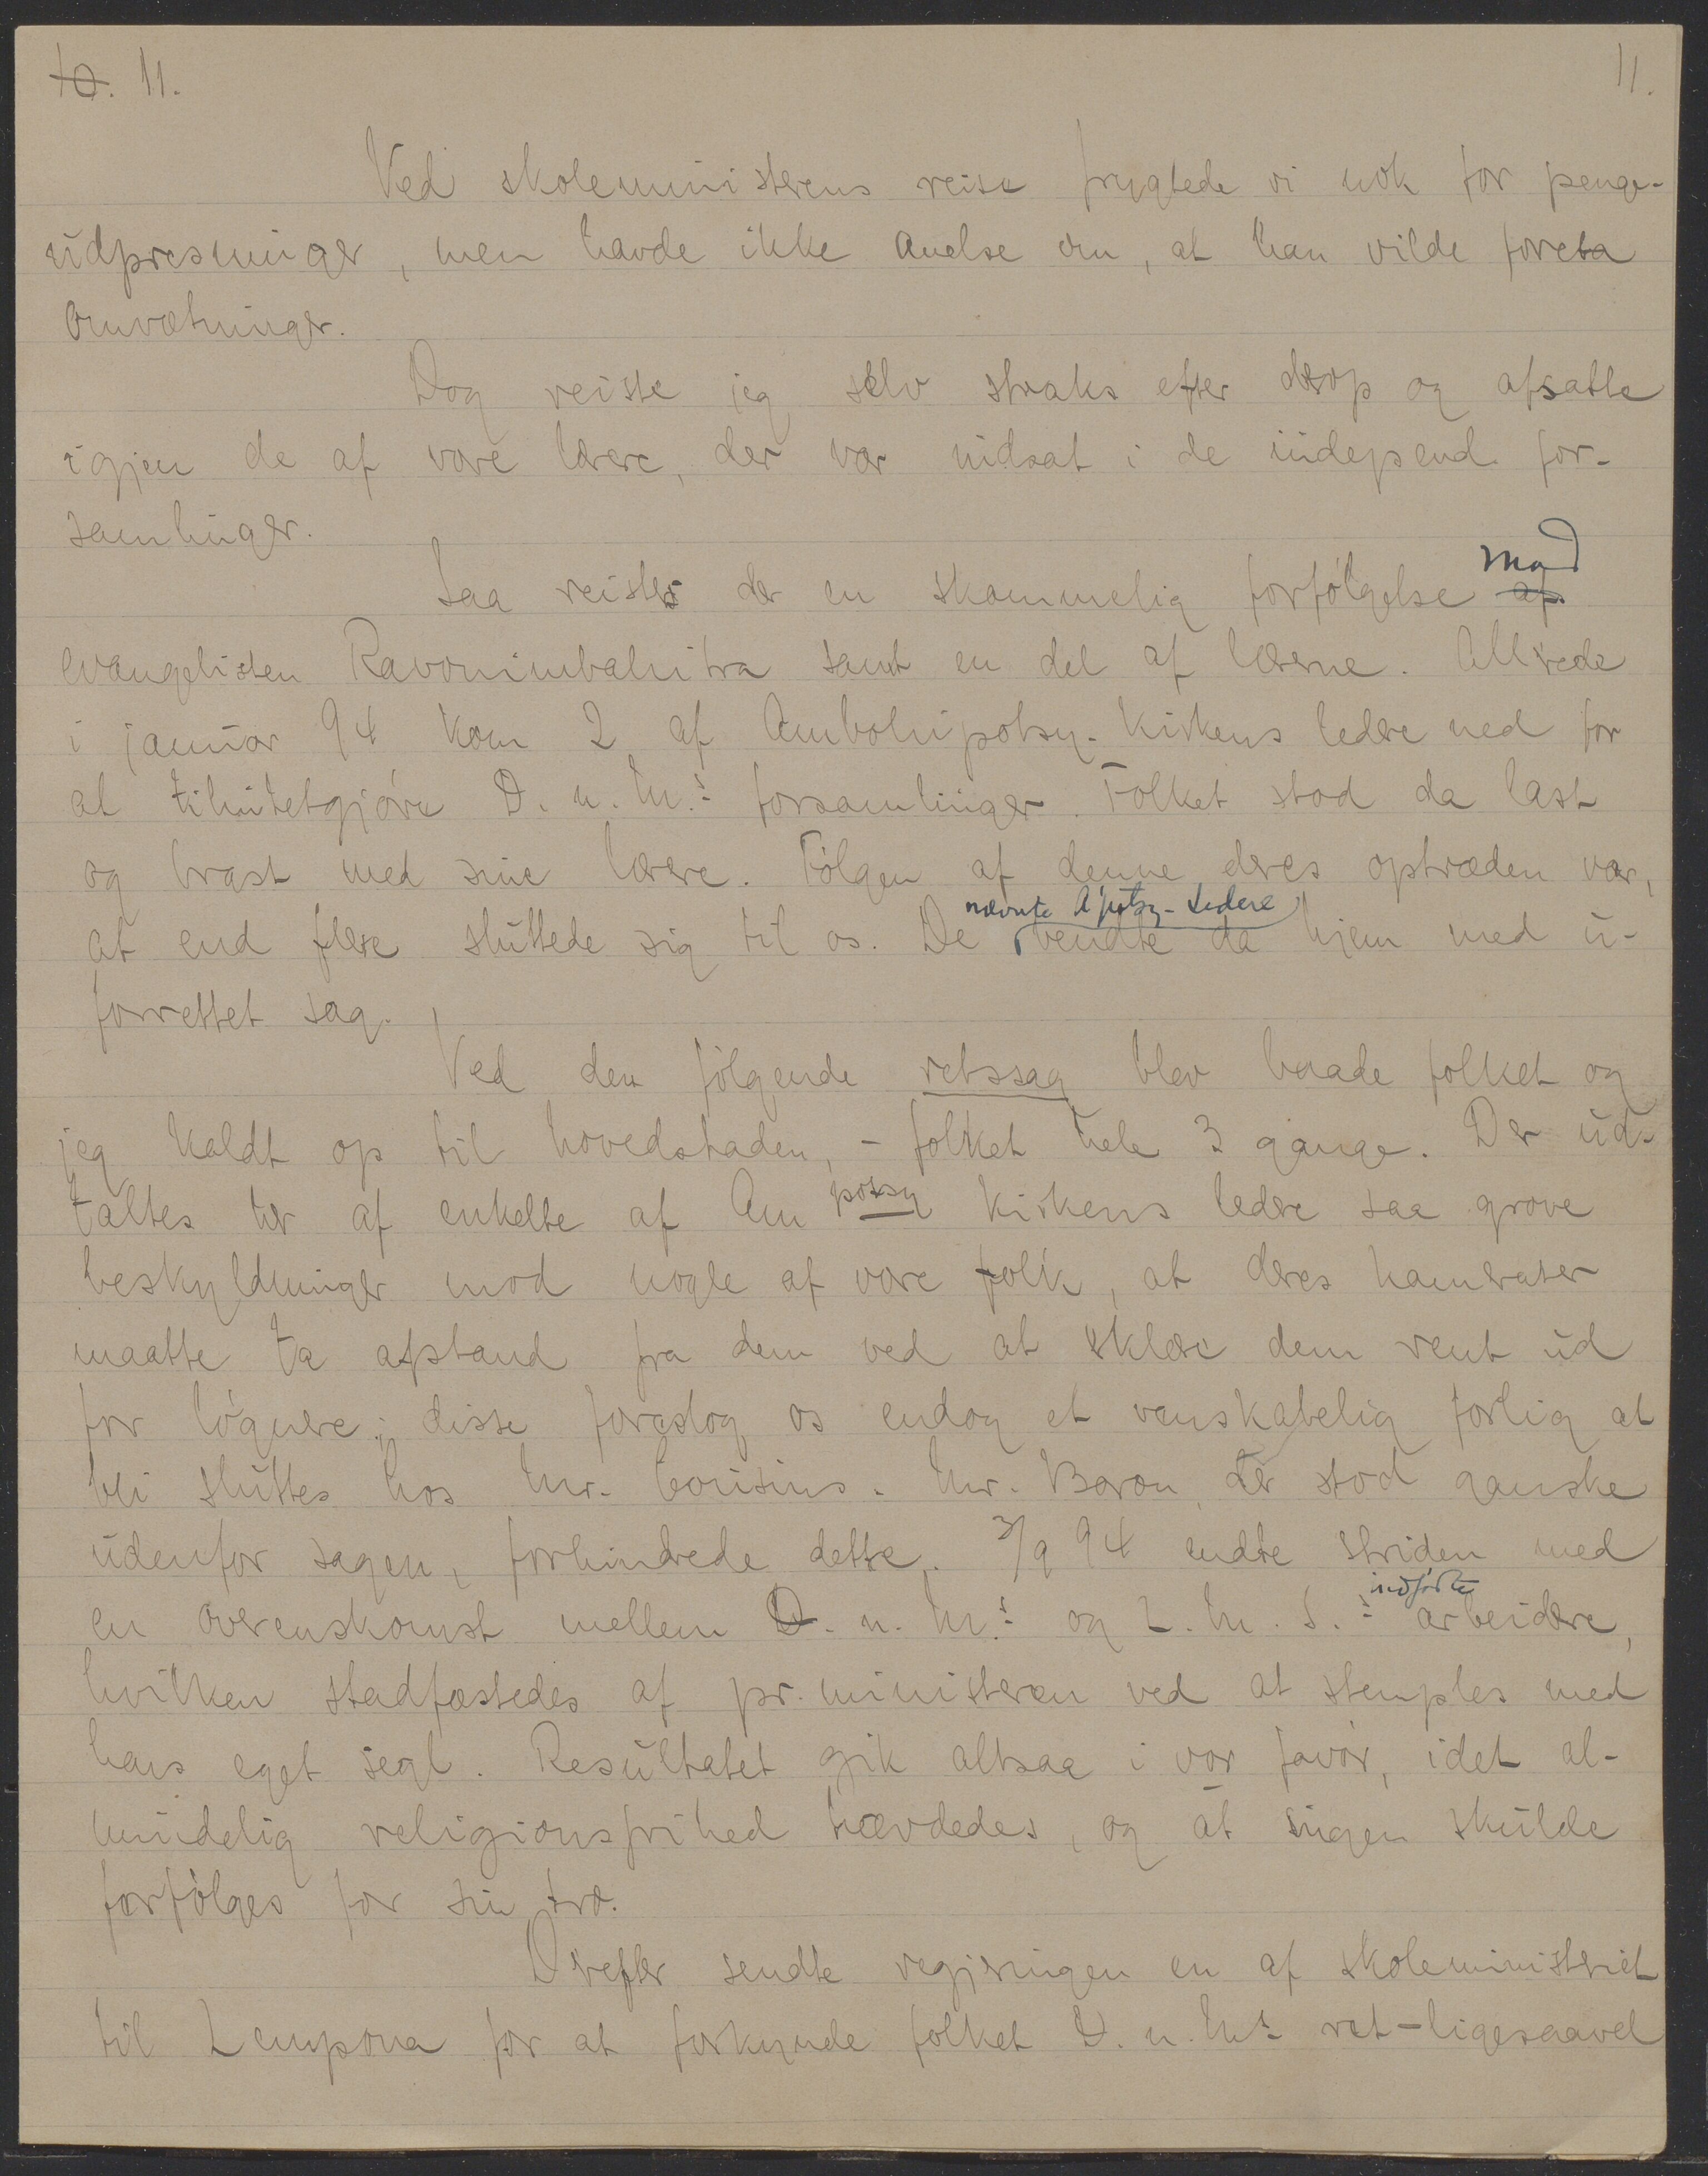 10. 11. 11.
Ved skoleministerens reise frygtede vi nok for penge-
udpresninger, men havde ikke anelse om, at han vilde foreta
omvæltninger.
Dog reiste jeg selv straks efter derop og afsatte
igjen de af vore lærere, der var indsat i de independ. for-
samlinger.
Saa reistes der en skammelig forfølgelse af mod
evangelisten Ravonimbahitra samt en del af lærerne. Allerede
i januar 94 kom 2 af Ambohipotsy-kirkens ledere ned for
at tilintetgjøre D. n. M.s forsamlinger. Folket stod da last
og brast med sine lærere. Følgen af denne deres optræden var,
nævnte A'potsy-ledere
at end flere sluttede sig til os. De vendte da hjem med u-
forrettet sag.
Ved den følgende retssag blev baade folket og
jeg kaldt op til hovedstaden, - folket hele 3 gange. Der ud-
taltes her af enkelte af Am potsy kirkens ledere saa grove
beskyldninger mod nogle af vore folk, at deres kamerater
maatte ta afstand fra dem ved at erklære dem rent ud
for løgnere; disse foreslog os endog et venskabelig forlig at
bli sluttes hos Mr. Cousins. Mr. Baron, der stod ganske
udenfor sagen, forhindrede dette. 3/9 94 endte striden med
indfødte
en overenskomst mellem D. n. M.s og L. M. S.s arbeidere,
hvilken stadfæstedes af pr. ministeren ved at stemples med
hans eget segl. Resultatet gik altsaa i vor favør, idet al-
mindelig religionsfrihed hævdedes, og at ingen skulde
forfølges for sin tro.
Derefter sendte regjeringen en af skoleministeriet
til Lempona for at forkynde folket D. n. M.s ret - ligesaavel